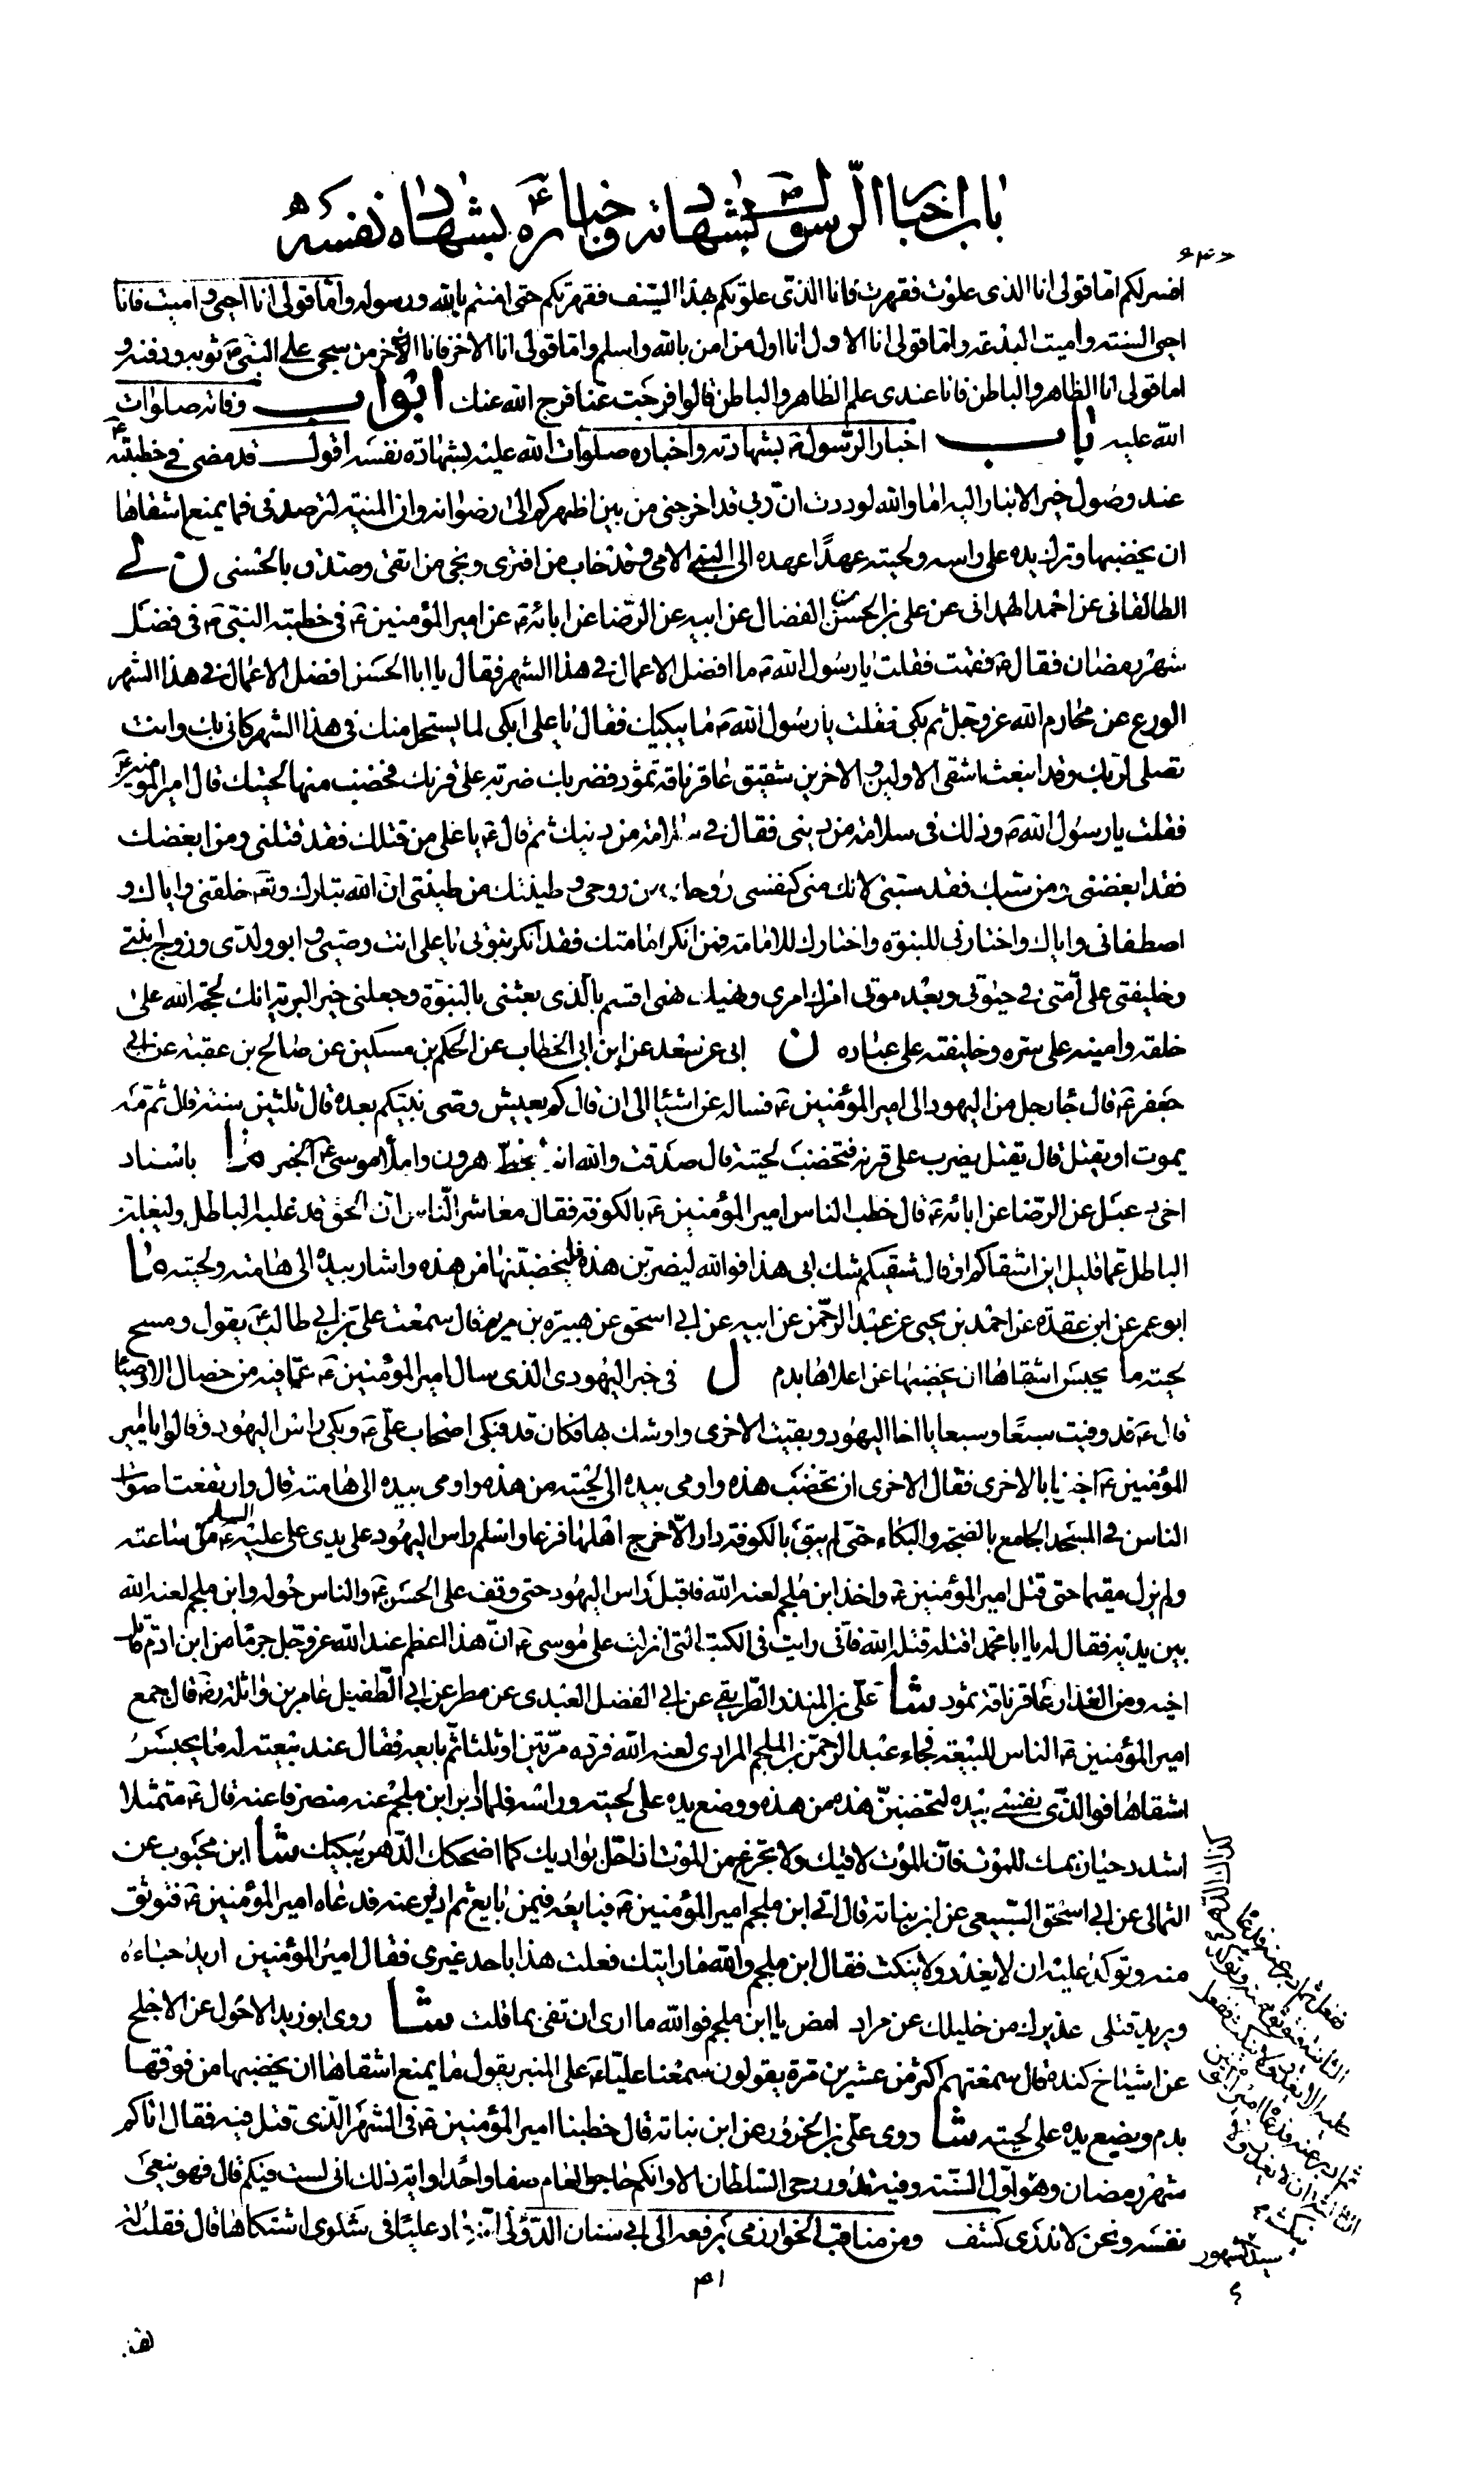 باب اخبار الرسول ص بشهادته و اخباره ع بشهادة نفسه
افسر لكم اما قولى انا الذى علوت فقهرت فانا الذى علوتكم بهذا السيف فقهرتكم حتى امنتم بالله و رسوله واما قولى انا احيى و اميت فانا
احيى السنة و اميت البدعة واما قولى انا الاول انا اول من امن بالله واسلم واما قولى انا الاخر فانا الاخر من سجى على النبى ص ثوبه ودفنه و
اما قولى انا الظاهر والباطن فانا عندى علم الظاهر والباطن قالوا فرجت عنا فرج الله عنك ابواب وفاته صلوات
الله عليه باب اخبار الرسول ص بشهادته واخباره صلوات الله عليه بشهادة نفسه اقول قد مضى فى خطبته ع
عند وصول خبر الانبار اليه اما والله لوددت ان ربى قد اخرجنى من بين اظهركم الى رضوانه وان المنية لترصدنى فما يمنع اشقاها
ان يخضبها وترك يده على راسه ولحيته عهدا عهده الى النبى الامى وقد خاب من افترى ونجى من اتقى وصدق بالحسنى ن لى
الطالقانى عن احمد الهمدانى عن على بن الحسن بن الفضال عن ابيه عن الرضا عن ابائه ع عن امير المؤمنين ع فى خطبته النبى ص فى فضل
شهر رمضان فقال ع فقمت فقلت يا رسول الله ص ما افضل الاعمال فى هذا الشهر فقال يا ابا الحسن افضل الاعمال فى هذا الشهر
الورع عن محارم الله عز وجل ثم بكى فقلت يا رسول الله ص ما يبكيك فقال يا على ابكى لما يستحل منك فى هذا الشهر كانى بك وانت
تصلى لربك وقد انبعث اشقى الاولين والاخرين شقيق عاقر ناقة ثمود فضربك ضربة على قرنك فخضب منها لحيتك قال امير المؤمنين ع
فقلت يا رسول الله ص وذلك فى سلامة من دينى فقال فى سلامة من دينك ثم قال ع يا على من قتلك فقد قتلنى ومن ابغضك
فقد ابغضنى ومن سبك فقد سبنى لانك منى كنفسى روحك من روحى و طينتك من طينتى ان الله تبارك وتع خلقنى واياك و
اصطفانى واياك واختارنى للنبوة واختارك للامامة فمن انكر امامتك فقد انكر نبوتى يا على انت وصيى و ابو ولدى وزوج ابنتى
وخليفتى على امتى فى حيوتى وبعد موتى امرك امرى ونهيك نهيى اقسم بالذى بعثنى بالنبوة وجعلنى خير البرية انك لحجة الله على
خلقه وامينه على سره وخليفته على عباده ن ابى عن سعد عن ابن ابى الخطاب عن الحكم بن مسكين عن صالح بن عقبة عن ابى
جعفر ع قال جا رجل من اليهود الى امير المؤمنين ع فساله عن اشيا الى ان قال كم يعيش وصى نبيكم بعده قال ثلثين سنة قال ثم مه
يموت او يقتل قال يقتل يضرب على قرنه فتخضب لحيته قال صدقت والله انه بخط هرون واملا موسى ع الخبر ما باسناد
اخى دعبل عن الرضا عن ابائه ع قال خطب الناس امير المؤمنين ع بالكوفة فقال معاشر الناس ان الحق قد غلبه الباطل وليغلبن
الباطل عما قليل اين اشقاكم او قال شقيكم شك ابى هذا فوالله ليضربن هذه فليخضبنها من هذه واشار بيده الى هامته ولحيته ما
ابو عمر عن ابن عقدة عن احمد بن يحيى عن عبد الرحمن عن ابيه عن ابى اسحق عن هبيرة بن مريم قال سمعت على بن ابى طالب ع يقول ومسح
لحيته ما يحبس اشقاها ان يخضبها عن اعلاها بدم ل فى خبر اليهودى الذى سال امير المؤمنين ع عما فيه من خصال الاوصيا
قال ع قد وفيت سبعا وسبعا يا اخا اليهود وبقيت الاخرى واوشك بها فكان قد فبكى اصحاب على ع وبكى راس اليهود وقالوا يا امير
المؤمنين ع اخبرنا بالاخرى فقال الاخرى ان تخضب هذه واومى بيده الى لحيته من هذه واومى بيده الى هامته قال وارتفعت اصوات
الناس فى المسجد الجامع بالضجة والبكاء حتى لم يبق بالكوفة دار الا خرج اهلها فزعا واسلم راس اليهود على يدى على عليه السلم من ساعته
ولم يزل مقيما حتى قتل امير المؤمنين ع واخذ ابن ملجم لعنه الله فاقبل راس اليهود حتى وقف على الحسن ع والناس حوله وابن ملجم لعنه الله
بين يديه فقال له يا ابا محمد اقتله قتله الله فانى رايت فى الكتب التى انزلت على موسى ع ان هذا اعظم عند الله عز وجل جرما من ابن ادم قاتل
اخيه ومن الغدار عاقر ناقة ثمود شا على بن المنذر الطريقى عن ابى الفضل العبدى عن مطر عن ابى الطفيل عامر بن واثلة رض قال جمع
امير المؤمنين ع الناس للبيعة فجاء عبد الرحمن بن الملجم المرادى لعنه الله فرده مرتين او ثلثا ثم بايعه فقال عند بيعته له ما يحبس
اشقاها فوالذى نفسى بيده لتخضبن هذه من هذه ووضع يده على لحيته وراسه فلما ادبر ابن ملجم عنه منصرفا عنه قال ع متمثلا
اشدد حيازيمك للموت فان الموت لاقيك ولا تجزع من الموت اذا حل بواديك كما اضحكك الدهر يبكيك شا ابن محبوب عن
الثمالى عن ابى اسحق السبيعى عن ابن نباتة قال اتى ابن ملجم امير المؤمنين ع فبايعه فيمن بايع ثم ادبر عنه فدعاه امير المؤمنين ع فتوثق
منه وتوكد عليه ان لا يغدر ولا ينكث فقال ابن ملجم والله ما رايتك فعلت هذا باحد غيرى فقال امير المؤمنين اريد حباءه
ويريد قتلى عذيرك من خليلك من مراد امض يا ابن ملجم فوالله ما ارى ان تفى بما قلت شا روى ابو زيد الاحول عن الاجلح
عن اشياخ كندة قال سمعتهم اكثر من عشرين مرة يقولون سمعنا عليا ع على المنبر يقول ما يمنع اشقاها ان يخضبها من فوقها
بدم ويضع يده على لحيته شا روى على بن الحزور عن ابن نباتة قال خطبنا امير المؤمنين ع فى الشهر الذى قتل فيه فقال اتاكم
شهر رمضان وهو اول السنة وفيه تدور رحى السلطان الا وانكم حاجوا العام صفا واحدا واية ذلك انى لست فيكم قال فهو ينعى
نفسه ونحن لا ندرى كشف ومن مناقب الخوارزمى يرفعه الى ابى سنان الدؤلى انه عاد عليا فى شكوى اشتكاها قال فقلت له